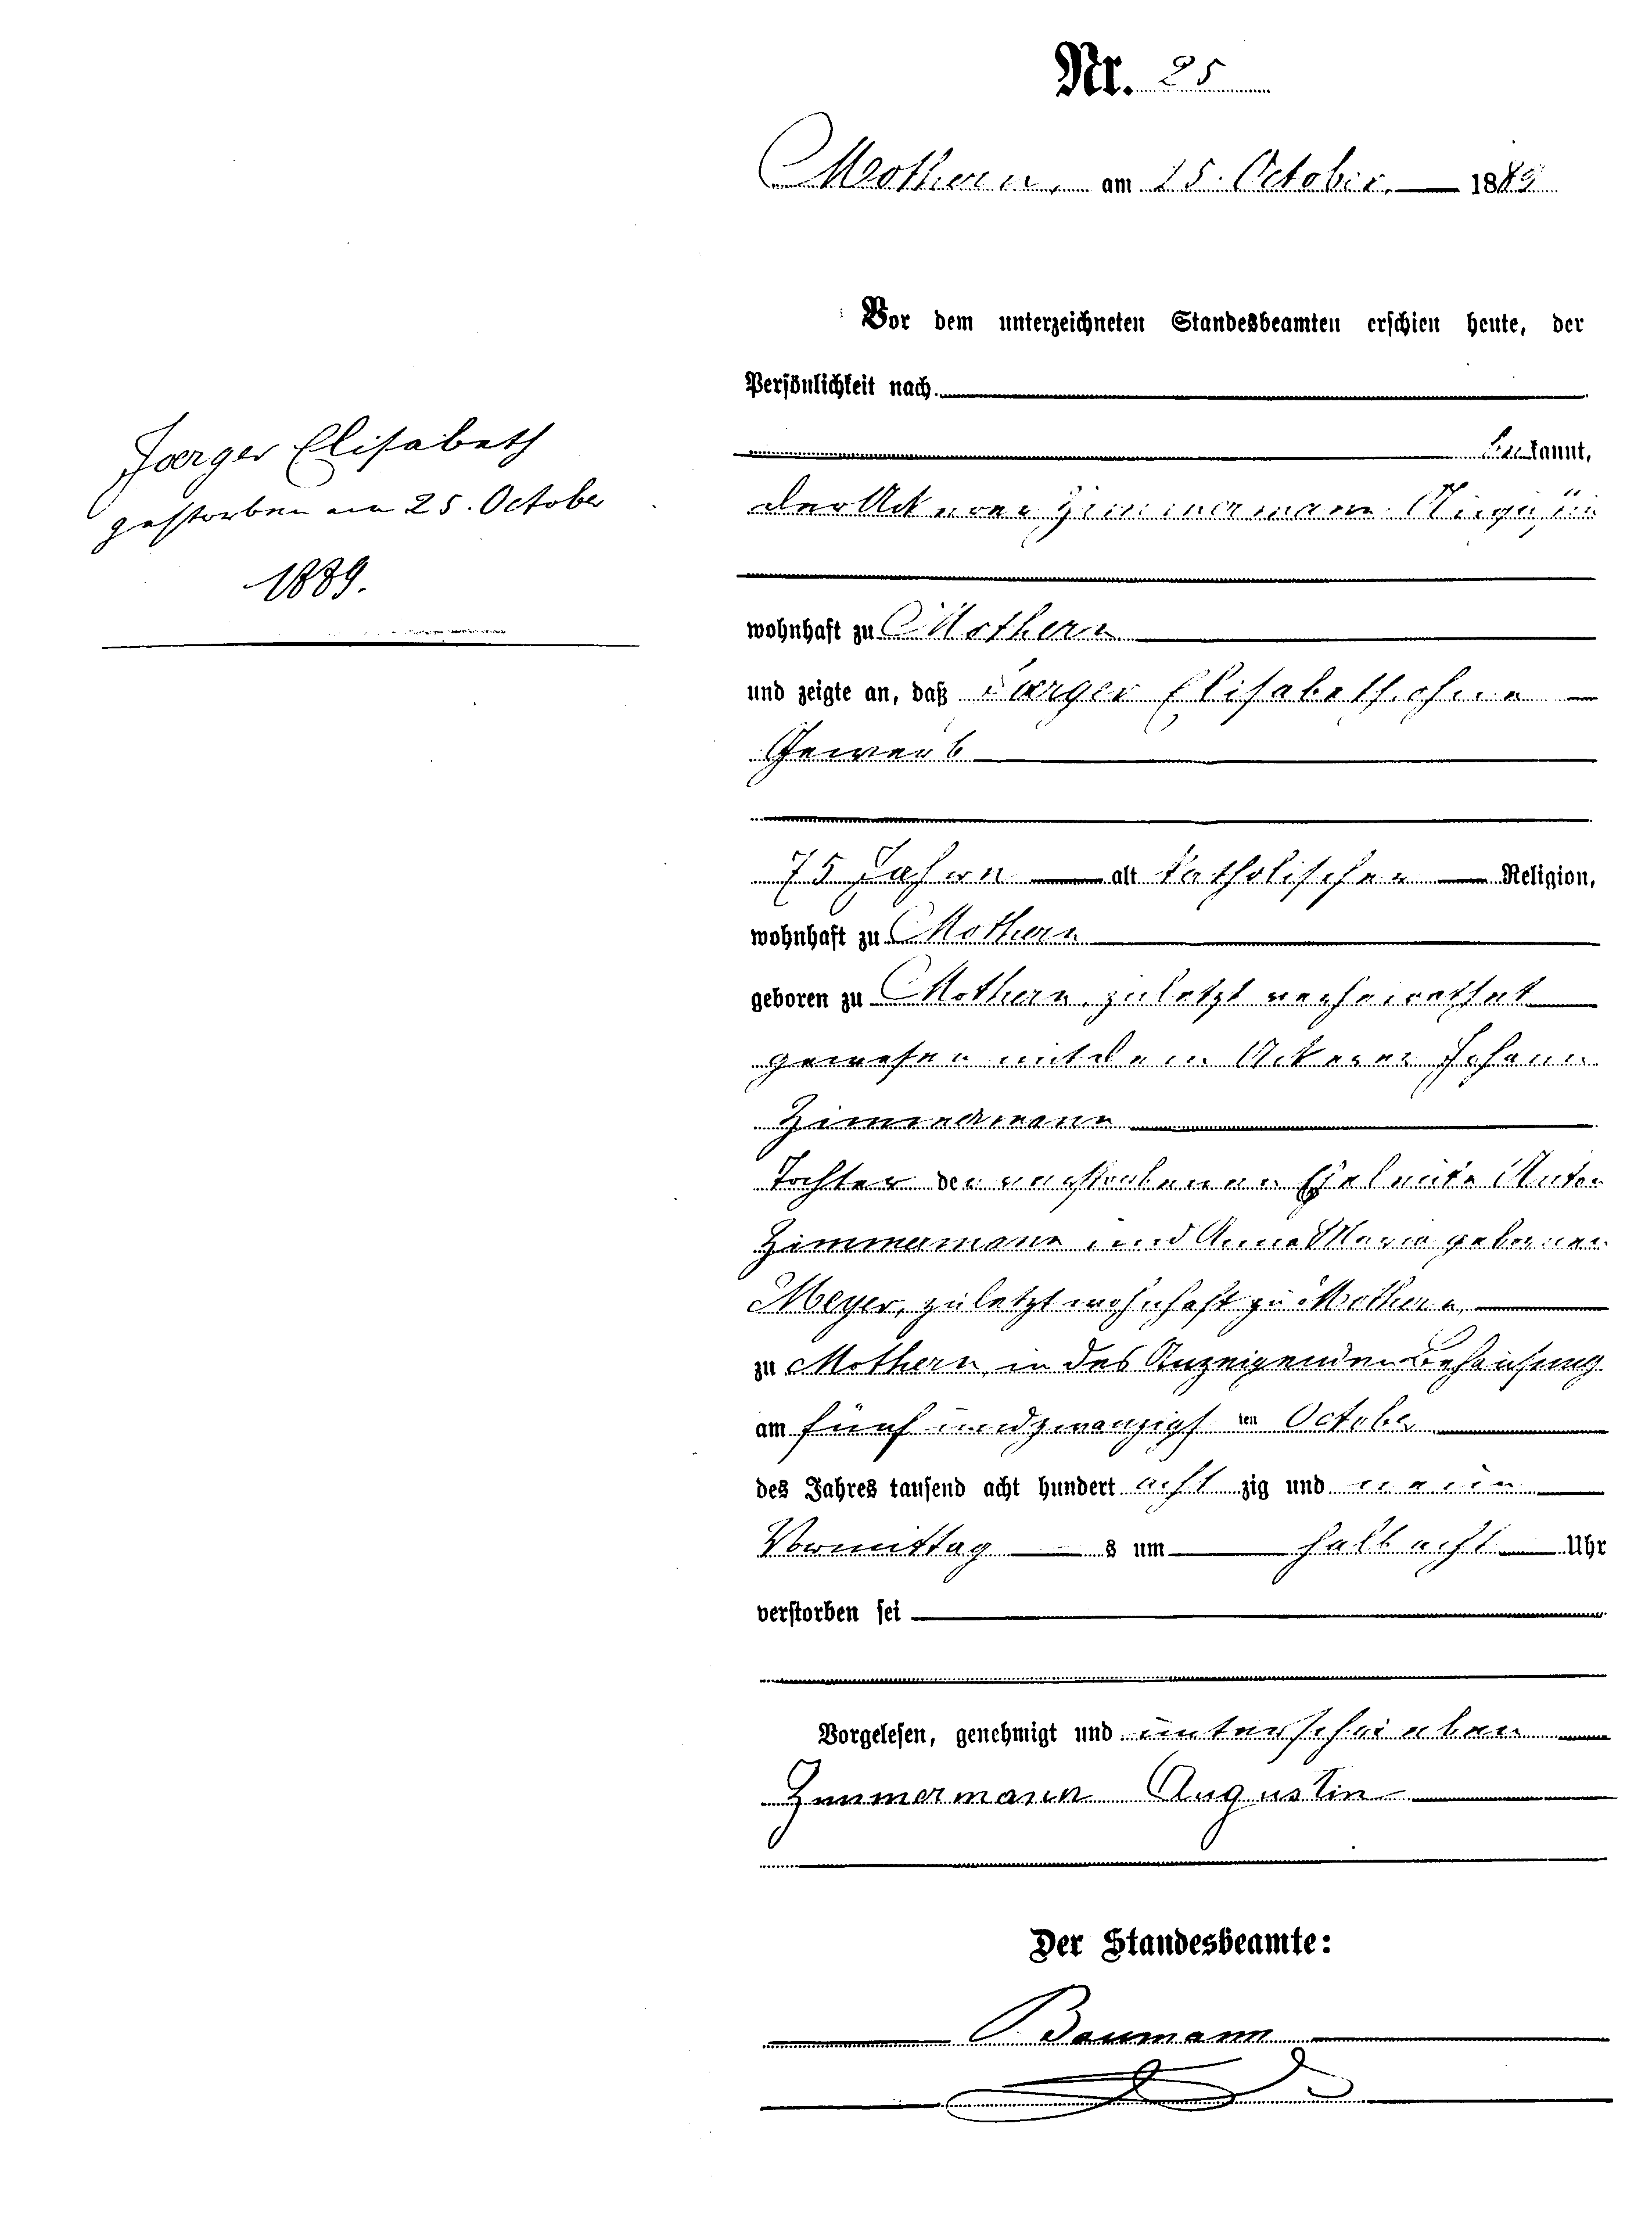 Nr. 25
Mothern, am 25. October 1889
Vor dem unterzeichneten Standesbeamten erschien heute, der
Persönlichkeit nach
bekannt,
der Ackerer Zimmermann Augustin
wohnhaft zu Mothern
und zeigte an, daß Joerger Elisabeth, ohne
Gewerb
75 Jahren alt katholischer Religion,
wohnhaft zu Mothern
geboren zu Mothern, zuletzt verheirathet
gewesen mit dem Ackerer Johann
Zimmermann
Tochter der verstorbenen Eheleute Anton
Zimmermann und Anna Maria geborenen
Meyer, zuletzt wohnhaft zu Mothern,
zu Mothern, in des Anzeigenden Behausung
am fünf und zwanzigsten October
des Jahres tausend acht hundert acht zig und neun
Vormittag s um halb acht Uhr
verstorben sei
Vorgelesen, genehmigt und unterschrieben
Zimmermann Augustin
Der Standesbeamte:
Baumann
Joerger Elisabeth
gestorben am 25. October
1889.